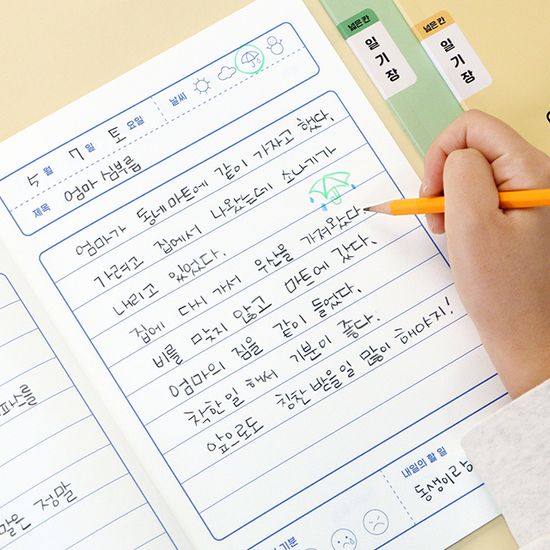 넓은칸
일기장
넓은칸
일기장
5 월 7 일 토 요일 날씨
제목 엄마 심부름
엄마가 동네마트에 같이 가자고 했다.
가려고 집에서 나왔는데 소나기가
내리고 있었다.
집에 다시 가서 우산을 가져왔다.
비를 맞지 않고 마트에 갔다.
엄마의 짐을 같이 들었다.
착한일 해서 기분이 좋다.
앞으로도 칭찬 받을일 많이 해야지!
내일의 할 일
동생이랑
기분
파스를
같은 정말